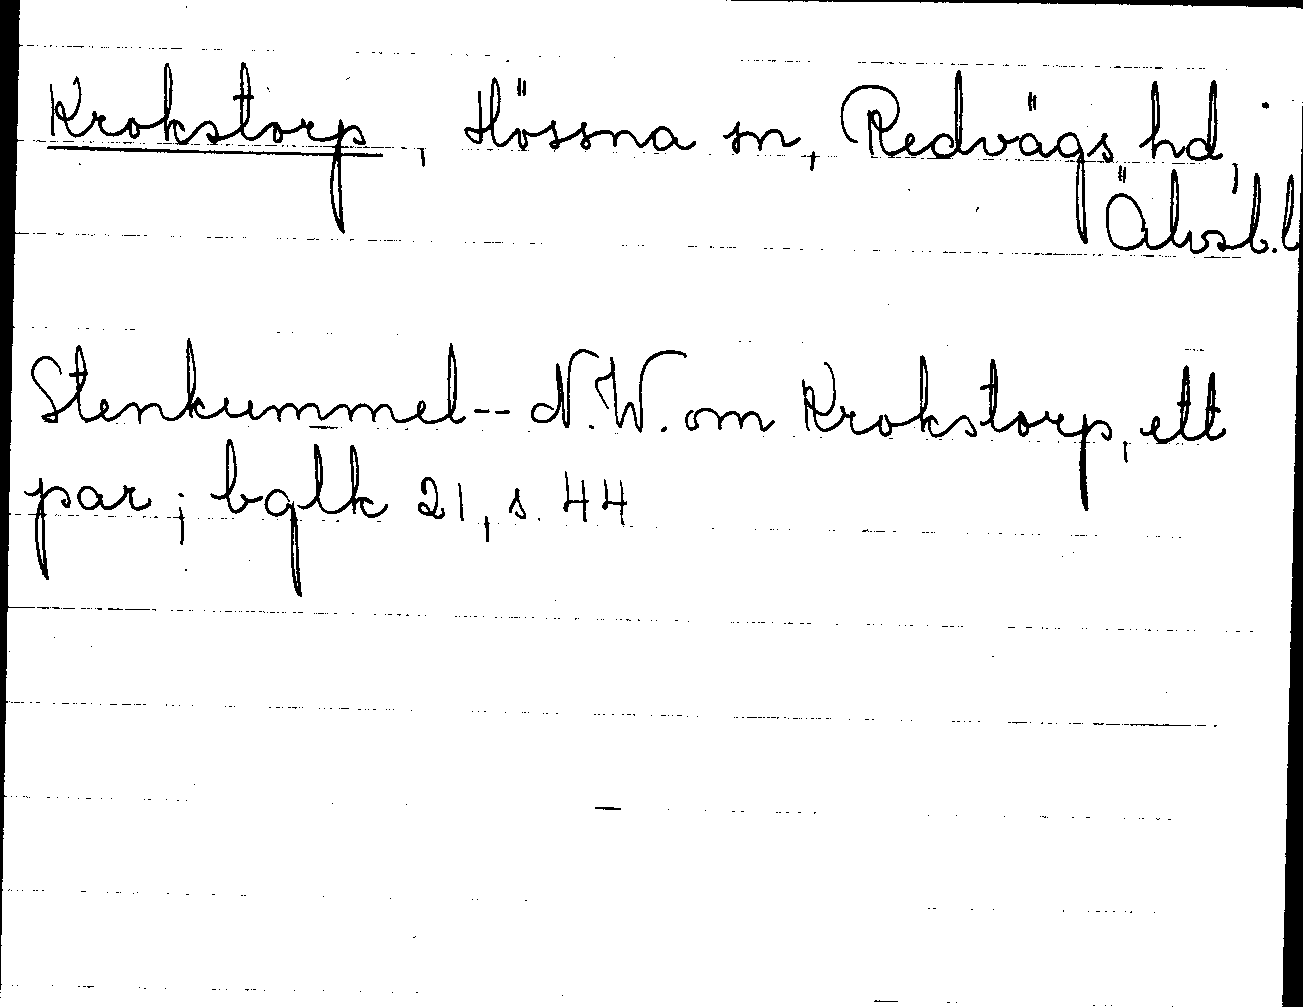 Krokstorp, Hössna sn, Redvägs hd,
Älvsb. l
Stenkummel -- N.W. om Krokstorp, ett
par; bglk 21, s. 44